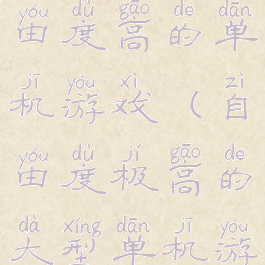 yóu dù gāo de dān
由度高的单
jī yóu xì zì
机游戏（自
yóu dù jí gāo de
由度极高的
dà xíng dān jī yóu
大型单机游